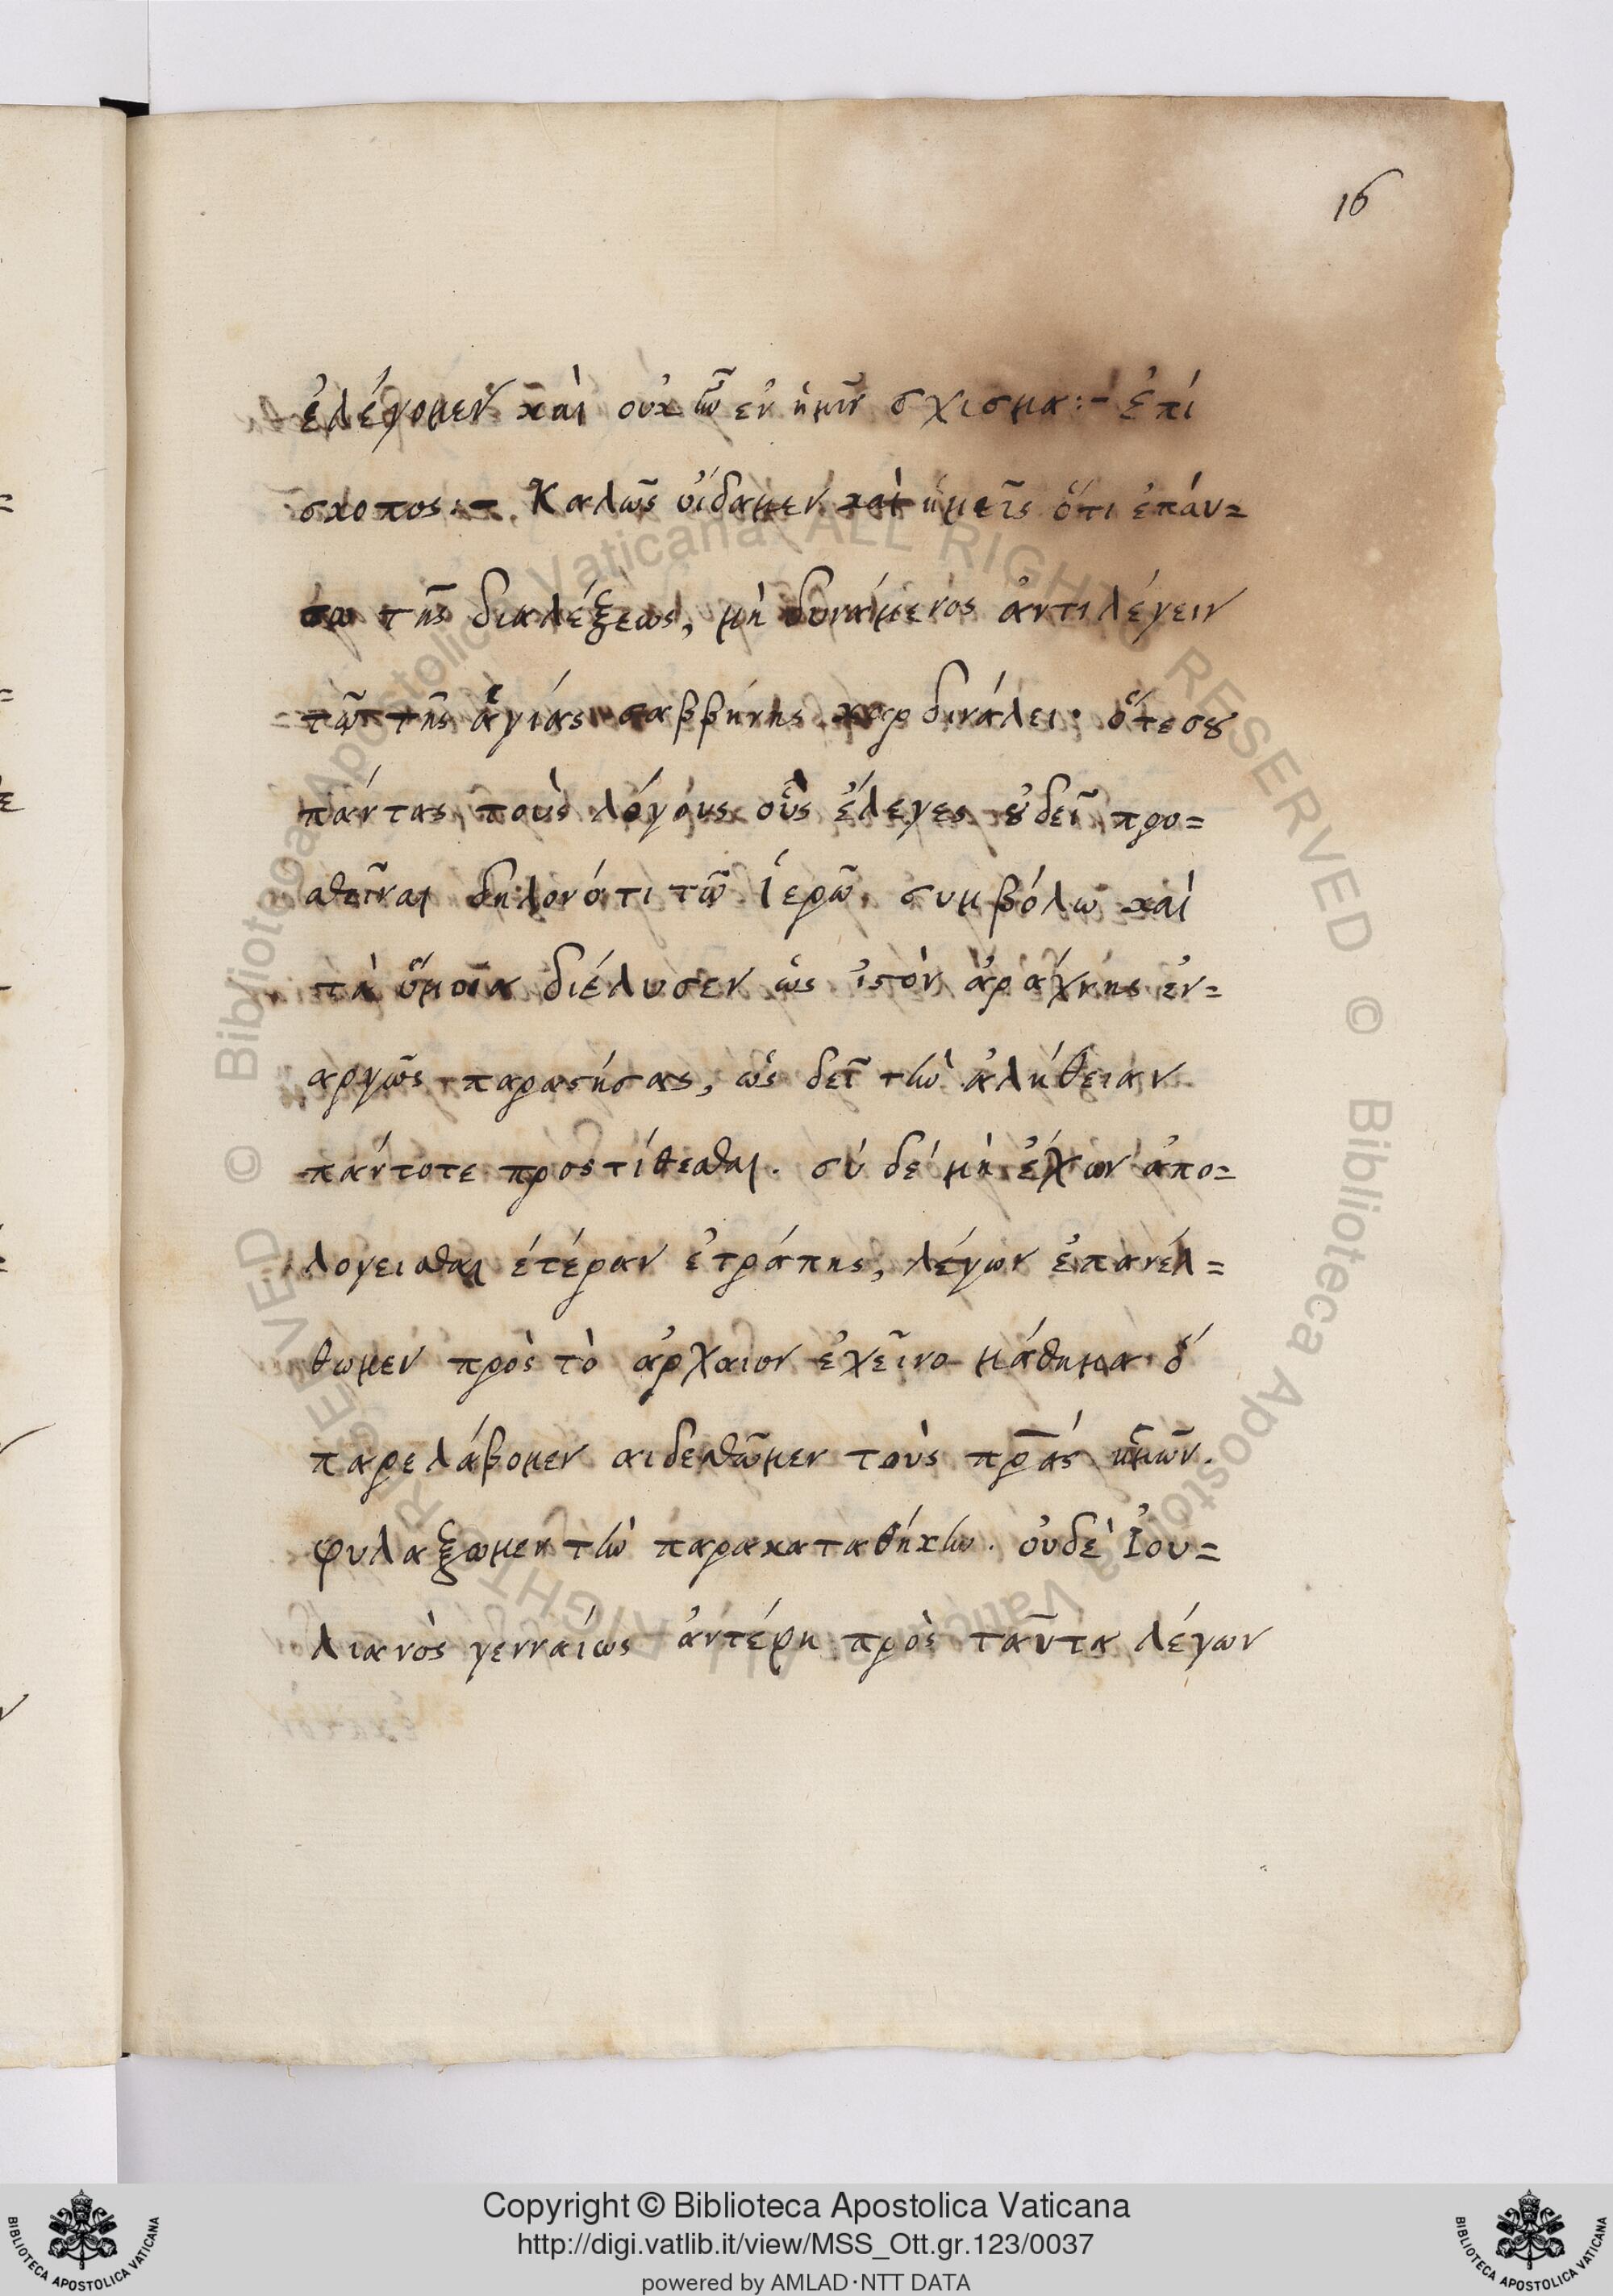 16
ἐλέγομεν καὶ οὐκ ἦν ἐν ἡμῖν σχισμα:- ἐπί
σκοπος:- Καλῶς οἴδαμεν καὶ ἡμεῖς ὅτι ἐπάν=
τῆς διαλέξεως, μὴ δυνάμενος ἀντιλέγειν
τῶ τῆς ἁγίας σαββήνης καρδινάλει· ὅτε σȣ
πάντας τοὺς λόγους οὓς ἔλεγες ȣ̓ δεῖ προ=
σθεῖναι δηλονότι τῶ ἱερῶ συμβόλω καὶ
τὰ ὅμοια διέλυσεν ὡς ἱστὸν ἀράχνης ἐν=
αργῶς παραστήσας, ὡς δεῖ τὴν ἀλήθειαν
πάντοτε προστίθεσθαι. σύ δέ μὴ ἔχων ἀπο=
λογεισθαι ἑτέραν ἐτράπης, λέγων ἐπανέλ=
θωμεν πρὸς τὸ ἀρχαιον ἐκεῖνο μάθημα ὅ
παρελάβομεν αιδεσθῶμεν τοὺς πρ̅ας ἡμῶν.
φυλαξωμεν τὴν παρακαταθήκην. οὐδὲ Ἰου=
λιανὸς γενναίως ἀντέφη πρὸς ταῦτα λέγων
© Biblioteca Apostolica Vaticana ALL RIGHTS RESERVED © Biblioteca Apostolica Vaticana ALL RIGHTS RESERVED
Copyright © Biblioteca Apostolica Vaticana
http://digi.vatlib.it/view/MSS_Ott.gr.123/0037
powered by AMLAD·NTT DATA
BIBLIOTECA APOSTOLICA VATICANA
BIBLIOTECA APOSTOLICA VATICANA